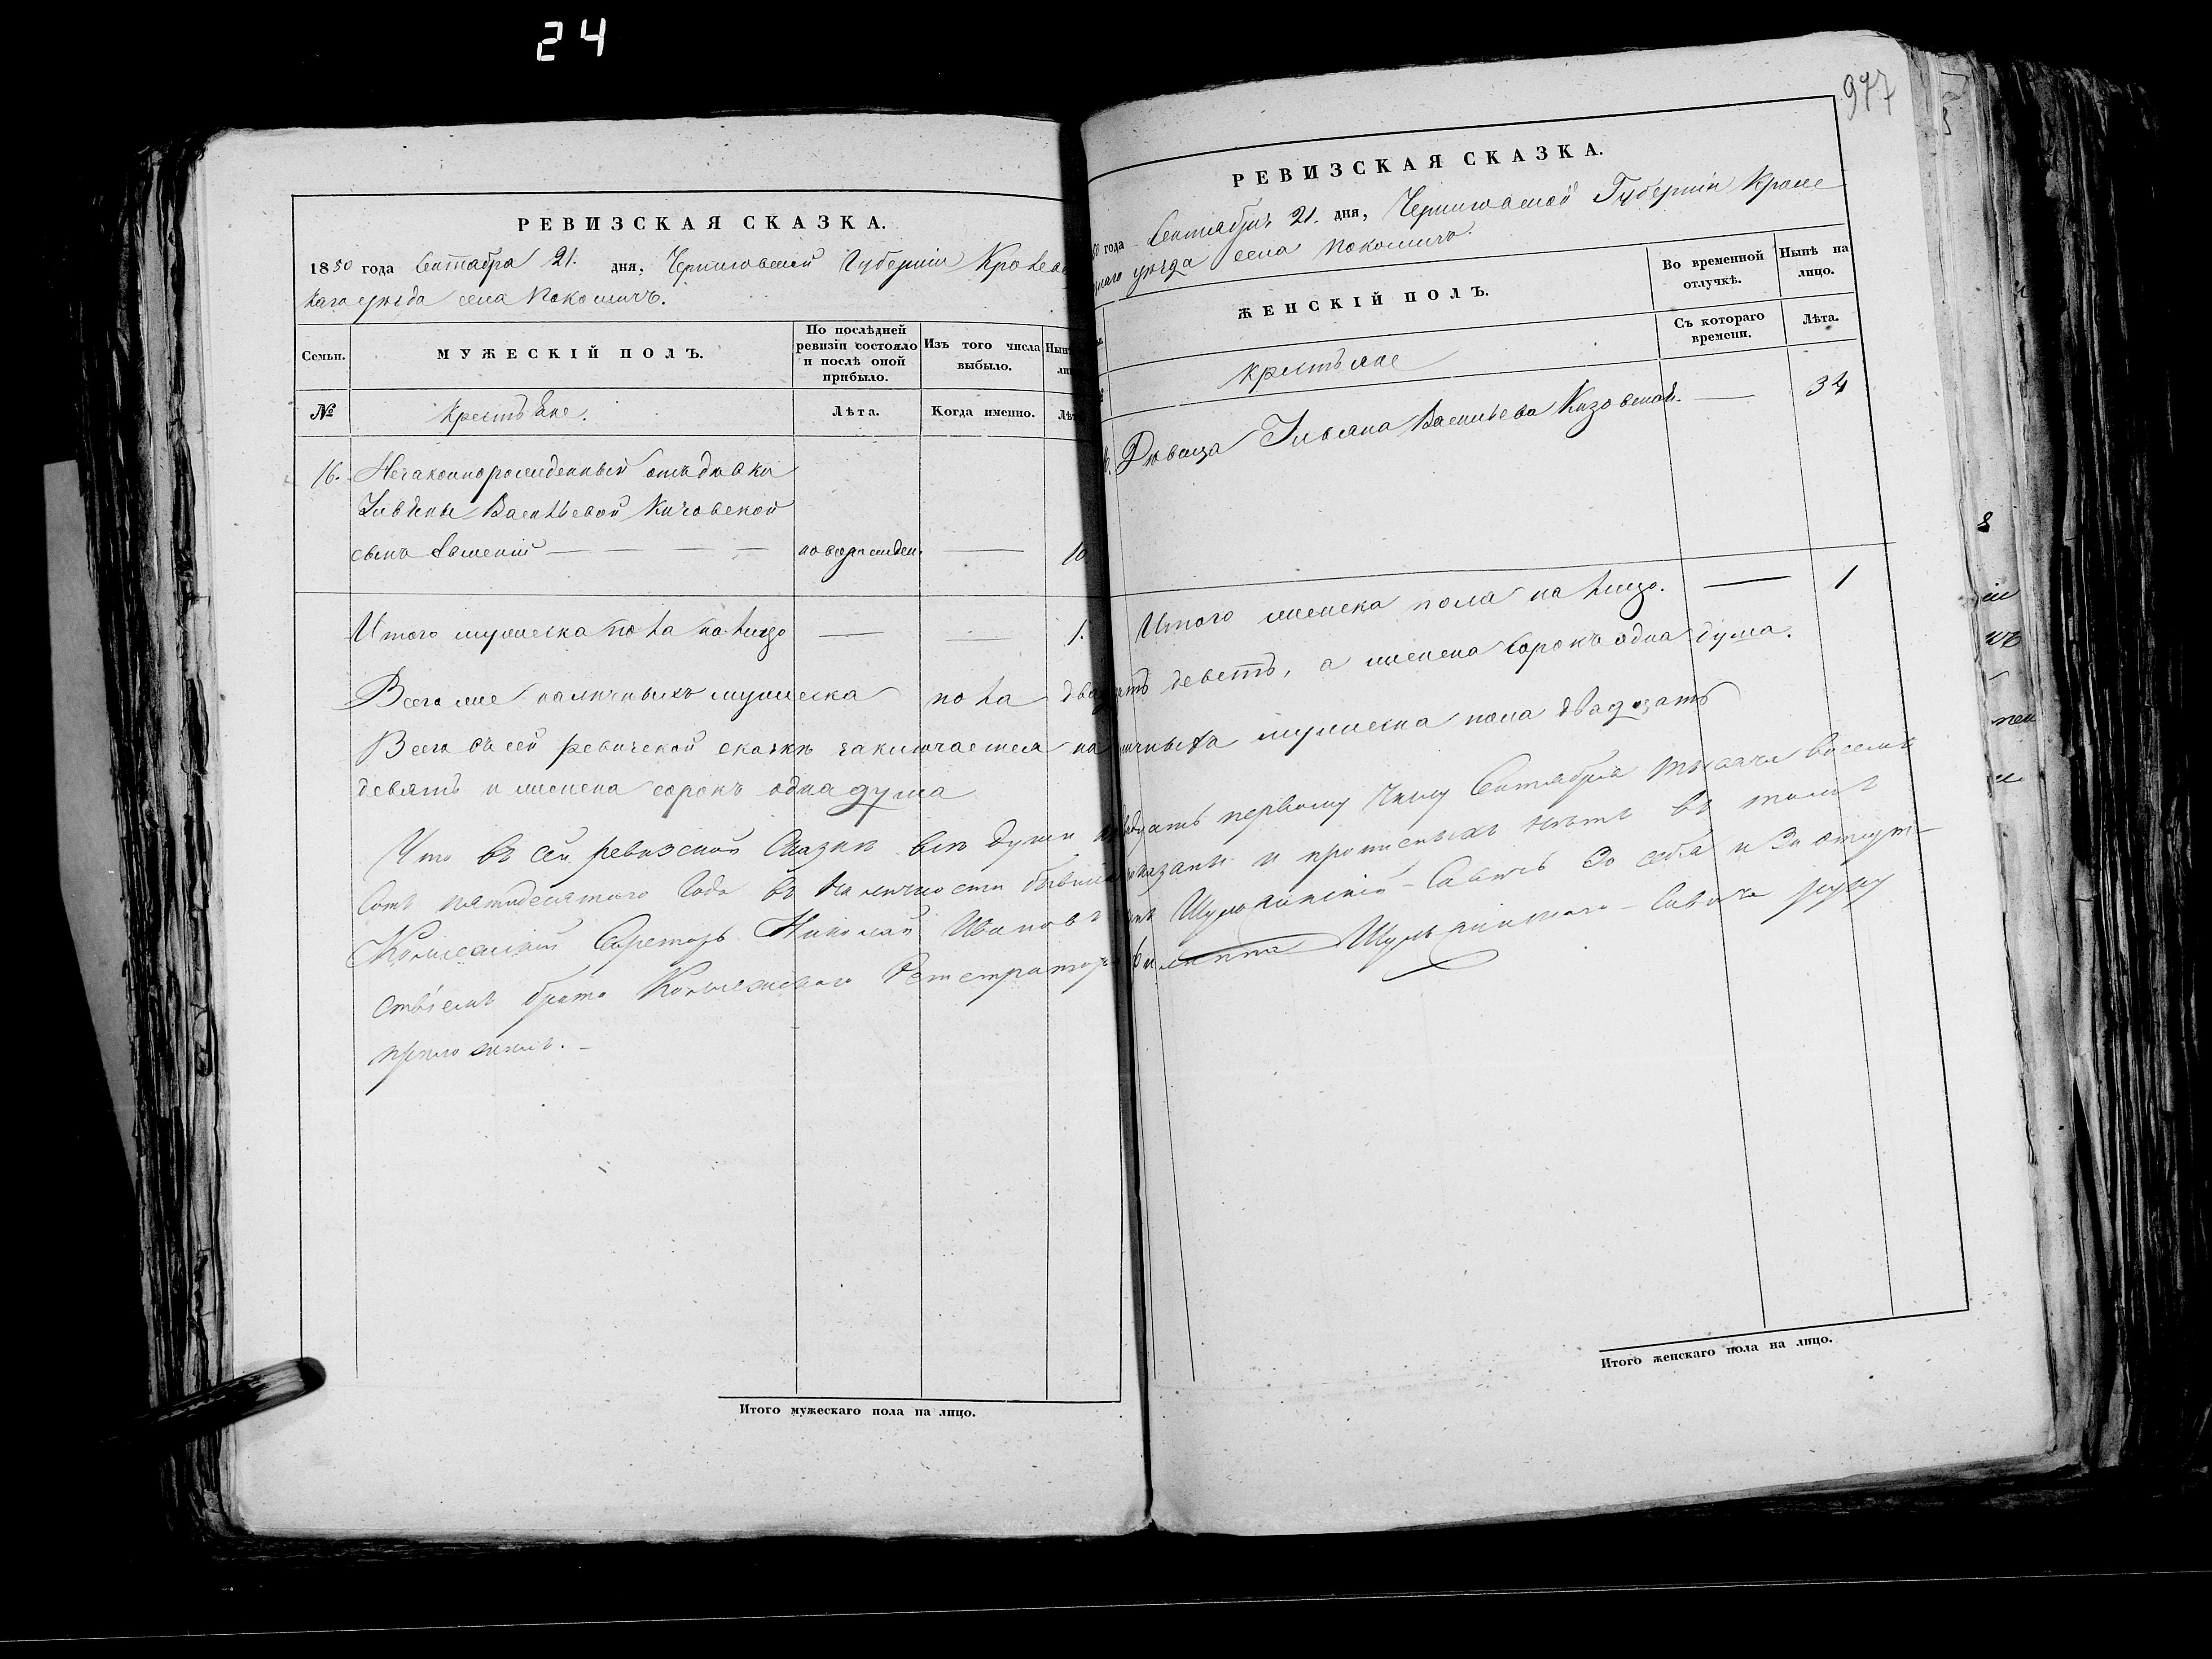 24
РЕВИЗСКАЯ СКАЗКА.
1850 года Сентабра 21. дня, Черниговской Губерніи Кролевец
каго уезда села Покошичъ.
Семьи.
МУЖЕСКІЙ ПОЛЪ.
По послѣдней ревизіи состояло и послѣ оной прибыло.
Изъ того числа выбыло.
№
Крестьяне.
Лѣта.
Когда именно.
16. Незаконнорожденный отъ дѣвки
Ульяны Васильевой Кизовской
сынъ Евменій новорожден. 10
Итого мужеска пола на лицо 1.
Всего же наличныхъ мужеска пола двадцать деветь, а женска сорокъ одна душа.
Всего въ сей ревизской сказкѣ заключается наличныхъ мужеска пола двадцать
девять и женска сорокъ одна душа
Что въ сей ревизской сказке все души къ двадцать первому числу Сентября тысяча восемь
сотъ пятидесятого Года въ наличности бывшіе показаны и прописныхъ нетъ въ томъ
Колежскій Секретарь Николай Ивановъ сынъ Шумлянскій-Савичъ За себя и За отсут-
ствіемъ брата Колежского Регистратора Шумлянского-Савича руку
приложилъ.
Итого мужескаго пола на лицо.
977
РЕВИЗСКАЯ СКАЗКА.
года Сентября 21. дня, Черниговской Губерніи Кроле
уезда села Покошичъ.
ЖЕНСКІЙ ПОЛЪ.
Во временной отлучкѣ.
Нынѣ на лицо.
Съ котораго времени.
Лѣта.
Крестьяне
Дѣвица Ульяна Васильева Кизовская. 34
Итого женска пола на лицо. 1
Итого женскаго пола на лицо.